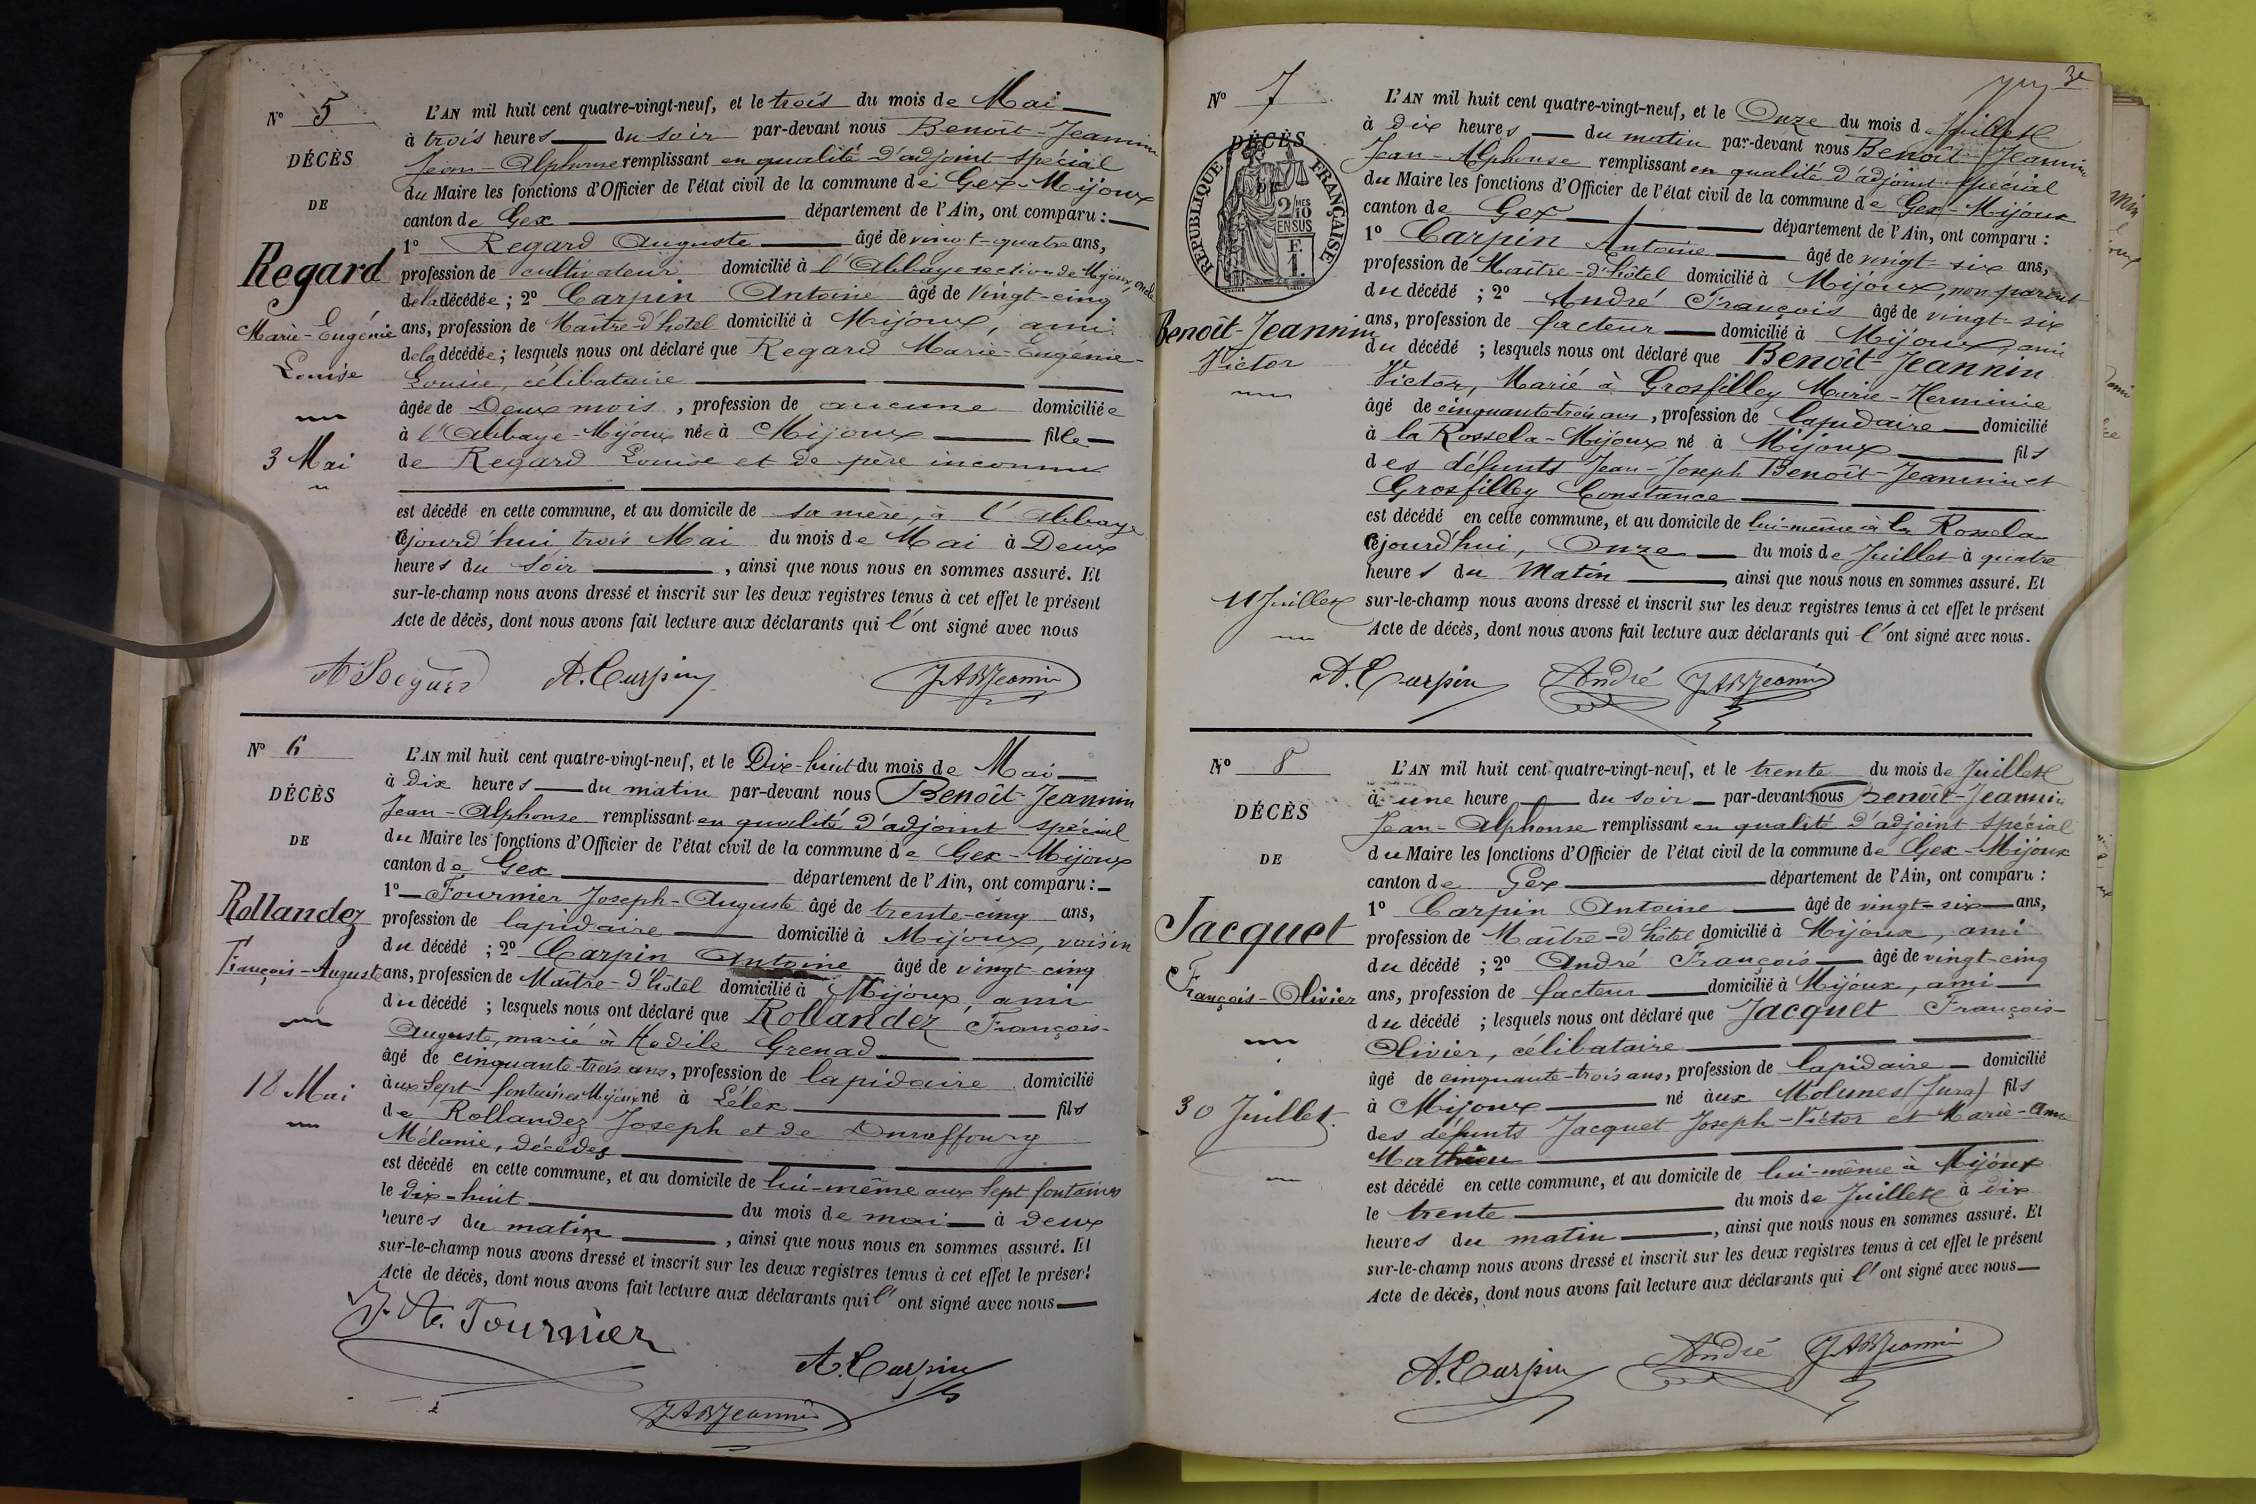 N° 5
DÉCÈS
DE
Regard
Marie-Eugénie
Louise
3 Mai
L'AN mil huit cent quatre-vingt-neuf, et le trois du mois de Mai
à trois heures du soir par-devant nous Benoît-Jeannin
Jean-Alphonse remplissant en qualité d'adjoint spécial
du Maire les fonctions d'Officier de l'état civil de la commune de Gex-Mijoux
canton de Gex département de l'Ain, ont comparu :
1° Regard Auguste âgé de vingt-quatre ans,
profession de cultivateur domicilié à l'Abbaye section de Mijoux, oncle
de la décédée ; 2° Carpin Antoine âgé de vingt-cinq
ans, profession de Maître-d'hôtel domicilié à Mijoux, ami
de la décédée ; lesquels nous ont déclaré que Regard Marie-Eugénie-
Louise, célibataire
âgée de Deux mois, profession de aucune domiciliée
à l'Abbaye-Mijoux née à Mijoux fille
de Regard Louise et de père inconnu
est décédé en cette commune, et au domicile de sa mère, à l'Abbaye
cejourd'hui trois Mai du mois de Mai à Deux
heures du soir, ainsi que nous nous en sommes assuré. Et
sur-le-champ nous avons dressé et inscrit sur les deux registres tenus à cet effet le présent
Acte de décès, dont nous avons fait lecture aux déclarants qui l'ont signé avec nous
A. Carpin JABJeannin
N° 6
DÉCÈS
DE
Rollandez
François-Auguste
18 Mai
L'AN mil huit cent quatre-vingt-neuf, et le Dix-huit du mois de Mai
à Dix heures du matin par-devant nous Benoît-Jeannin
Jean-Alphonse remplissant en qualité d'adjoint spécial
du Maire les fonctions d'Officier de l'état civil de la commune de Gex-Mijoux
canton de Gex département de l'Ain, ont comparu :
1° Fournier Joseph-Auguste âgé de trente-cinq ans,
profession de lapidaire domicilié à Mijoux, voisin
du décédé ; 2° Carpin Antoine âgé de vingt cinq
ans, profession de Maître-d'hôtel domicilié à Mijoux, ami
du décédé ; lesquels nous ont déclaré que Rollandez François-
Auguste, marié à Grenad
âgé de cinquante-trois ans, profession de lapidaire domicilié
aux Sept fontaines Mijoux né à Lélex fils
de Rollandez Joseph et de Duraffourg
Mélanie, décédés
est décédé en cette commune, et au domicile de lui-même aux Sept fontaines
le dix-huit du mois de mai à deux
heures du matin, ainsi que nous nous en sommes assuré. Et
sur-le-champ nous avons dressé et inscrit sur les deux registres tenus à cet effet le présent
Acte de décès, dont nous avons fait lecture aux déclarants qui l'ont signé avec nous
J. A. Fournier
A. Carpin
JABJeannin
3e
N° 7
DÉCÈS
DE
RÉPUBLIQUE FRANÇAISE
2/10MES
EN SUS
F.
1.
Benoît-Jeannin
Victor
11 Juillet
L'AN mil huit cent quatre-vingt-neuf, et le Onze du mois d Juillet
à Dix heures du matin par-devant nous Benoît-Jeannin
Jean-Alphonse remplissant en qualité d'adjoint spécial
du Maire les fonctions d'Officier de l'état civil de la commune de Gex-Mijoux
canton de Gex département de l'Ain, ont comparu :
1° Carpin Antoine âgé de vingt-six ans,
profession de Maître-d'hôtel domicilié à Mijoux, non parent
du décédé ; 2° André François âgé de vingt-six
ans, profession de facteur domicilié à Mijoux, ami
du décédé ; lesquels nous ont déclaré que Benoît-Jeannin
Victor, Marié à Grosfilley Marie-Herminie
âgé de cinquante-trois ans, profession de lapidaire domicilié
à la Rossela-Mijoux né à Mijoux fils
des défunts Jean-Joseph Benoît-Jeannin et
Grosfilley Constance
est décédé en cette commune, et au domicile de lui-même à la Rossela
cejourd'hui, Onze du mois de Juillet à quatre
heures du Matin, ainsi que nous nous en sommes assuré. Et
sur-le-champ nous avons dressé et inscrit sur les deux registres tenus à cet effet le présent
Acte de décès, dont nous avons fait lecture aux déclarants qui l'ont signé avec nous.
A. Carpin André JABJeannin
N° 8
DÉCÈS
DE
Jacquet
François-Olivier
30 Juillet
L'AN mil huit cent quatre-vingt-neuf, et le trente du mois de Juillet
à une heure du soir par-devant nous Benoît-Jeannin
Jean-Alphonse remplissant en qualité d'adjoint spécial
du Maire les fonctions d'Officier de l'état civil de la commune de Gex-Mijoux
canton de Gex département de l'Ain, ont comparu :
1° Carpin Antoine âgé de vingt-six ans,
profession de Maître-d'hôtel domicilié à Mijoux, ami
du décédé ; 2° André François âgé de vingt-cinq
ans, profession de facteur domicilié à Mijoux, ami
du décédé ; lesquels nous ont déclaré que Jacquet François-
Olivier, célibataire
âgé de cinquante-trois ans, profession de lapidaire domicilié
à Mijoux né aux Molunes (Jura) fils
des défunts Jacquet Joseph-Victor et Marie-Anne
Mathieu
est décédé en cette commune, et au domicile de lui-même à Mijoux
le trente du mois de Juillet à dix
heures du matin, ainsi que nous nous en sommes assuré. Et
sur-le-champ nous avons dressé et inscrit sur les deux registres tenus à cet effet le présent
Acte de décès, dont nous avons fait lecture aux déclarants qui l'ont signé avec nous
A. Carpin André JABJeannin